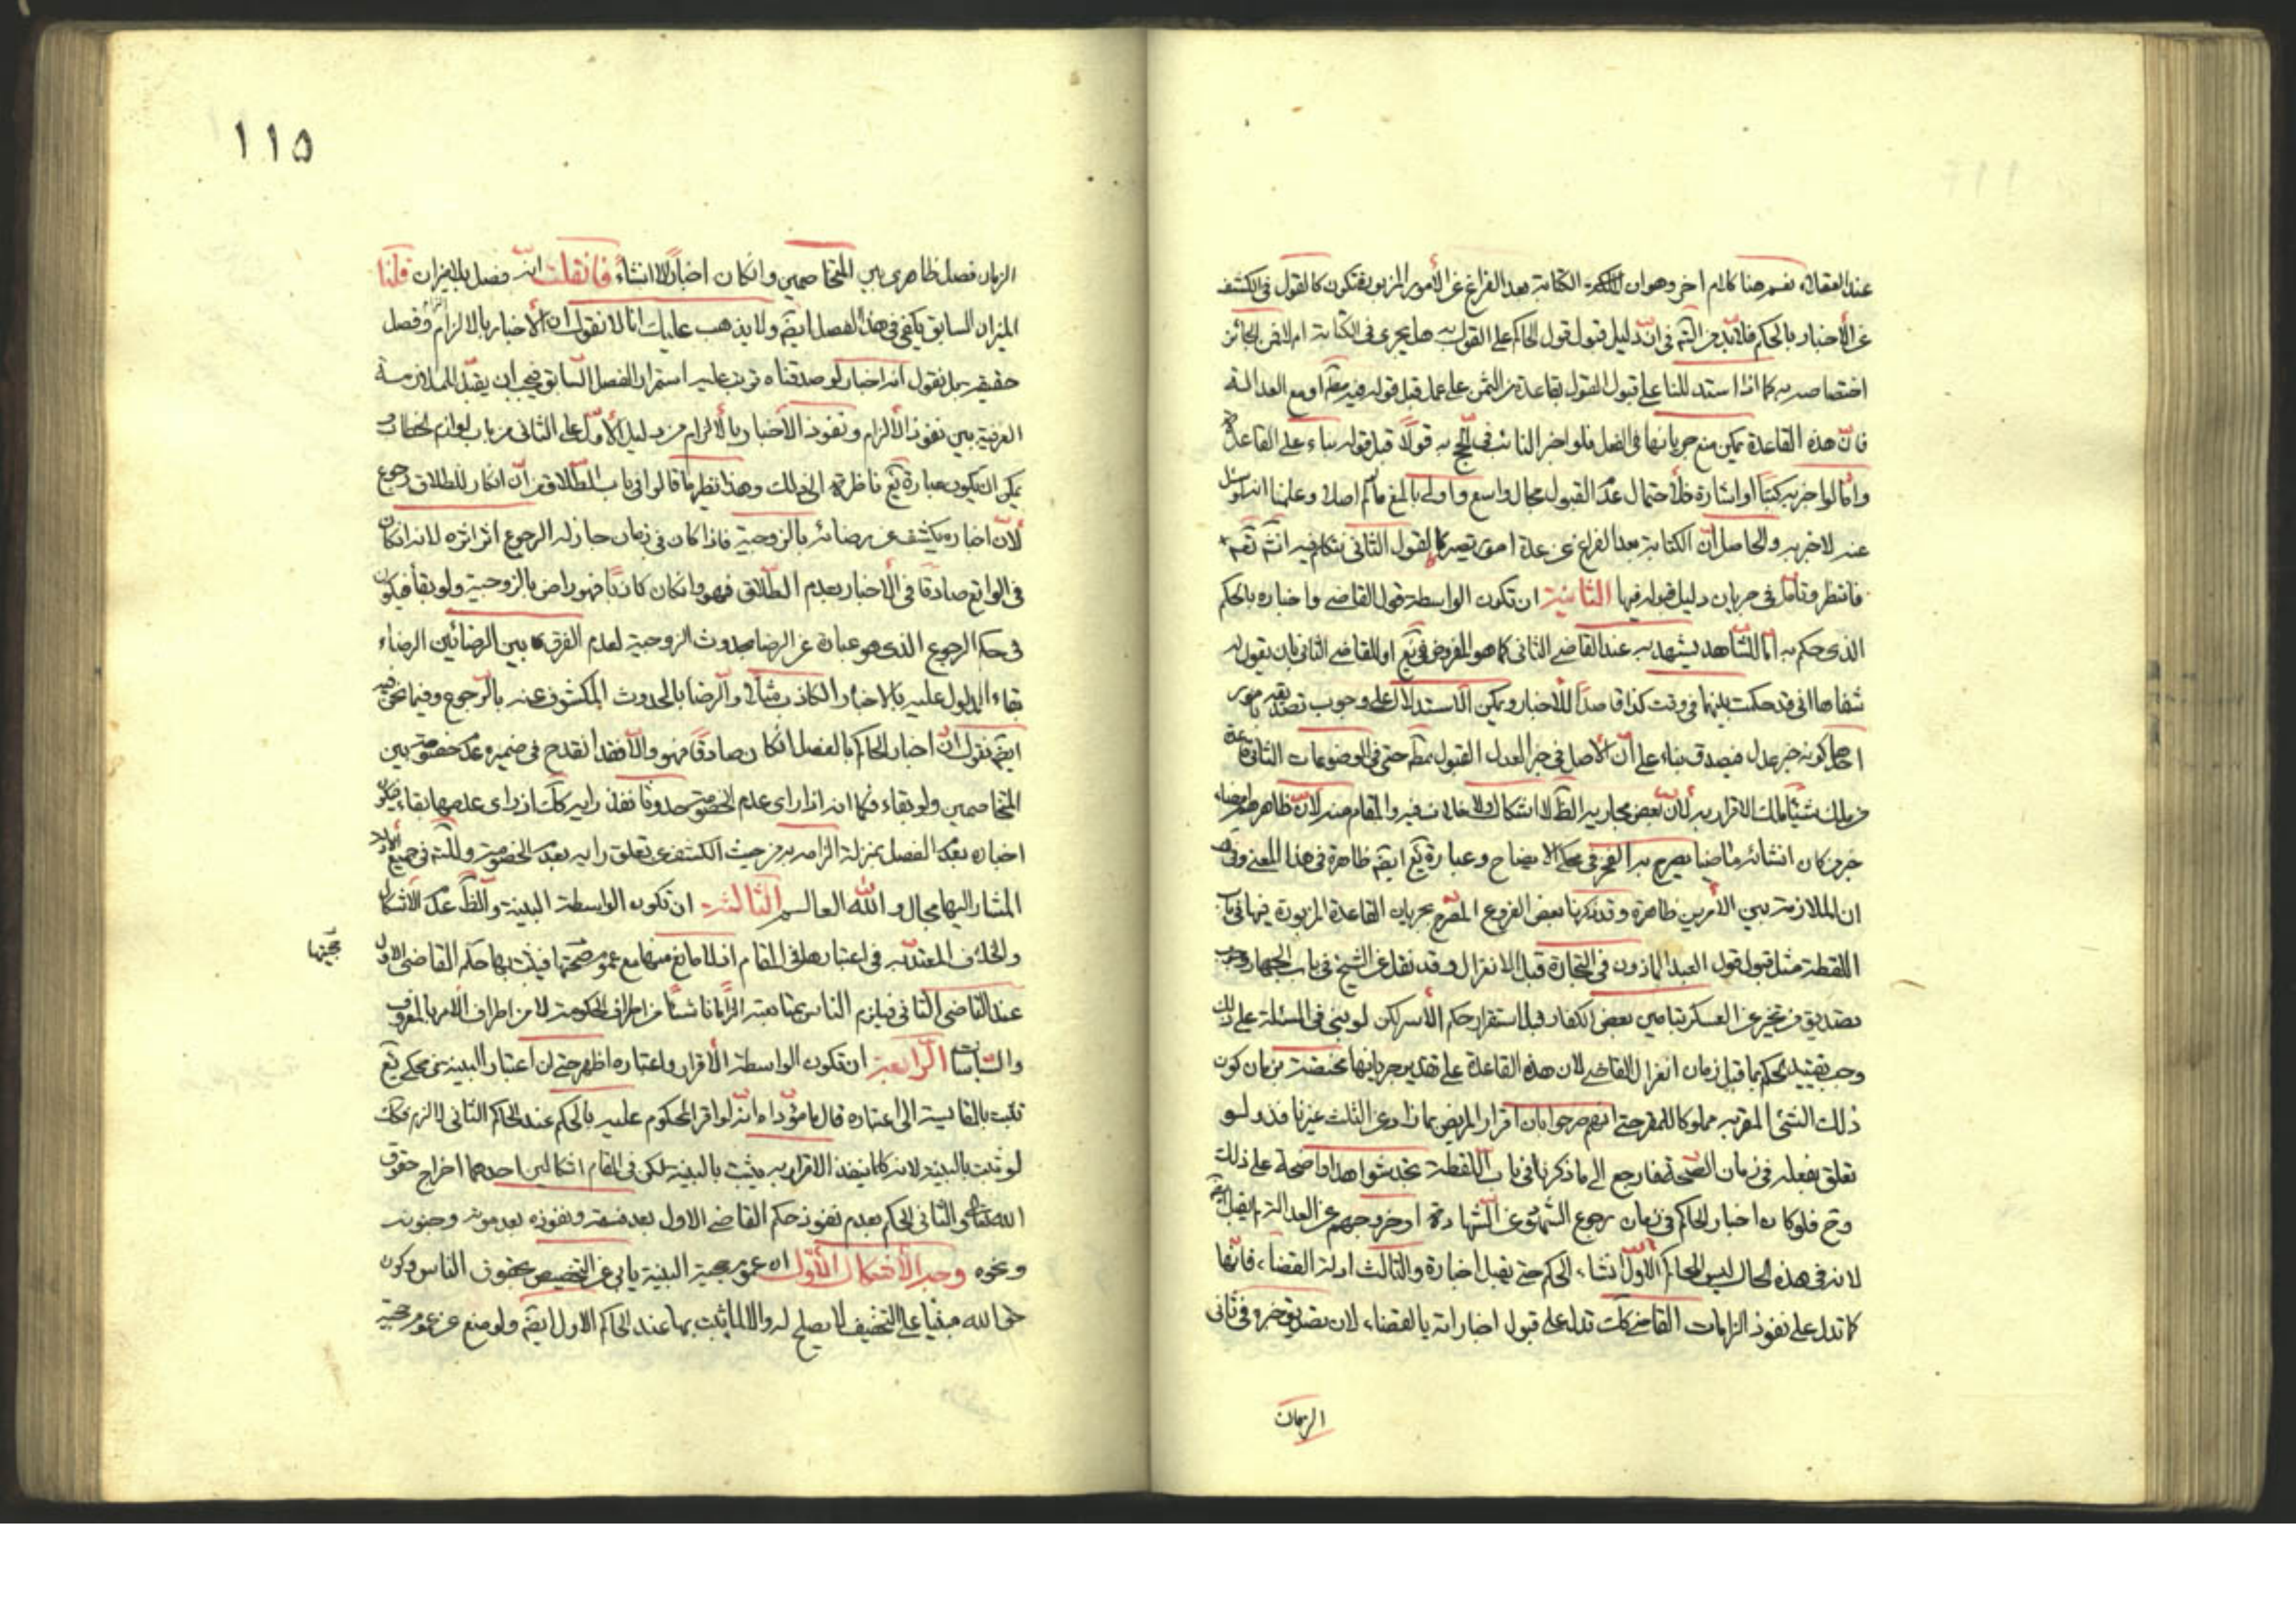 عند العقلاء نعم هنا كلام اخر وهو ان الكتابة بعد الفراغ عن الأمور المزبورة تكون كالقول في الكشف
عن الأخبار بالحكم فلا بد من التأمل في ان دليل قبول قول الحاكم على القول به هل يجري في الكتابة ام لا فمن الجائز
اختصاصه به كما اذا استند للبناء على قبول القول بقاعدة من ائتمن على عمل قبل قوله فيه مطلقا او مع العدالة
فان هذه القاعدة يمكن منع جريانها في الفعل فلو اخبر النائب في الحج به قولا قبل قوله بناء على القاعدة
واما لو اخبر به كتبا او اشارة فلاحتمال عدم القبول مجال واسع واولى بالمنع ما لم اصلا وعلمنا انه لو سئل
عنه لاخبر به والحاصل ان الكتابة بعد الفراغ عن عدة امور تصير كالقول الثاني نتكلم فيه انش تعم
فانتظر وتأمل في جريان دليل قبوله فيها الثانية ان تكون الواسطة قول القاضي واخباره بالحكم
الذي حكم به اما للشاهد ليشهد به عند القاضي الثاني كما هو المفروض في يع او للقاضي الثاني بان يقول له
شفاها اني قد حكمت بينهما في وقت كذا قاصدا للأخبار ويمكن الاستدلال على وجوب تصديقه بامور
احدها كونه خبر عدل فيصدق بناء على ان الأصل في خبر العدل القبول مطلقا حتى في الموضوعات الثاني قاعدة
من ملك شيئا ملك الاقرار به لأن بعض مجاريه الظ لا اشكال ولا خلاف فيه والمقام منه لأن ظاهره
خبر من كان انشائه ماضيا يصرح به الفخر في محكي الايضاح وعبارة يع ايضا ظاهرة في هذا المعنى
ان الملازمة بين الأمرين ظاهرة وقد ذكرنا بعض الفروع المتفرع بجريان القاعدة المزبورة فيها في باب
اللقطة مثل قبول قول العبد الماذون في التجارة قبل الانعزال وقد نقل عن الشيخ في باب الجهاد وجوب
تصديق من يخبر عن العسكر بتامين بعض الكفار قبل استقرار حكم الأسر لكن لو بنى في المسئلة على ذلك
وجب تقييد الحكم بما قبل زمان انعزال القاضي لان هذه القاعدة على تقدير جريانها مختصة بزمان كون
ذلك الشئ المقر به مملوكا للمقر حتى انهم صرحوا بان اقرار المريض بما زاد عن الثلث غير نافذ ولو
تعلق بفعله في زمان الصحة فارجع الى ما ذكرنا في باب اللقطة تجد شواهد واضحة على ذلك
وح فلو كان اخبار الحاكم في زمان رجوع الشهود عن الشهادة او خروجهم عن العدالة لم يقبل
لانه في هذه الحال ليس للحاكم الاول انشاء الحكم حتى يقبل اخباره والثالث ادلة القضاء فانها
كما تدل على نفوذ الزامات القاضي كك تدل على قبول اخباراته بالقضاء لان تصديق خبره في ثاني
الزمان
١١٥
الزمان فصل ظاهري بين المتخاصمين وان كان اخبارا لا انشاء فان قلت انه فصل بلا ميزان قلنا
الميزان السابق يكفي في هذا الفصل ايضا ولا يذهب عليك انا لا نقول ان الأخبار بالالزام الزام وفصل
حقيقة بل نقول انه اخبار لو صدقناه ترتب عليه استمرار الفصل السابق فيجب ان يقبل للملازمة
العرفية بين نفوذ الألزام ونفوذ الأخبار بالألزام من دليل الأول على الثاني من باب لوازم الخطاب
يمكن ان يكون عبارة يع ناظرة الى ذلك وهذا نظير ما قالوا في باب الطلاق من ان انكار الطلاق رجوع
لأن اخباره يكشف عن رضائه بالزوجية فاذا كان في زمان جاز له الرجوع اثر اثره لانه ان كان
في الواقع صادقا في الأخبار بعدم الطلاق فهو وان كان كاذبا فهو راض بالزوجية ولو بقاء فيكون
في حكم الرجوع الذي هو عبارة عن الرضا بحدوث الزوجية لعدم الفرق بين الرضائين الرضاء
بقاء المدلول عليه بالاخبار الكاذب مثلا والرضا بالحدوث المكشوف عنه بالرجوع وفيما نحن فيه
ايضا نقول ان اخبار الحاكم بالفصل ان كان صادقا فهو والا فقد انقدح في ضميره عدم خصومة بين
المتخاصمين ولو بقاء فكما انه اذا راى عدم الخصومة حدوثا نفذ رايه كك اذ راى عدمها بقاء فيكون
اخباره بعد الفصل بمنزلة الزامه به من حيث الكشف عن تعلق رايه بعدم الخصومة وللتأمل في جميع الأدلة
المشار اليها مجال والله العالم الثالثة ان تكون الواسطة البينة والظ عدم الاشكال
والخلاف المعتد به في اعتبارها في المقام اذ لا مانع منها مع عموم حجيتها فيثبت بها حكم القاضي الاول
حجيتها
عند القاضي الثاني فيلزم الناس بمتابعته الزاما ناشئا من اطراف الحكومة لا من اطراف الامر بالمعروف
والسياسات الرابعة ان تكون الواسطة الأقرار واعتباره اظهر حتى ان اعتبار البينة في محكي يع
ثبت بالمقايسة الى اعتباره قال ما مؤداه انه لو اقر المحكوم عليه بالحكم عند الحاكم الثاني لالزم فكك
لو ثبت بالبينة لانه كلما ينفذ الاقرار به يثبت بالبينة لكن في المقام اشكالين احدهما اخراج حقوق
الله تعالى والثاني الحكم بعدم نفوذ حكم القاضي الاول بعد فسقه ونفوذه بعد موته وجنونه
ونحوه وجه الأشكال الأول ان عموم حجية البينة يابى عن التخصيص بحقوق الناس وكون
حق الله مبنيا على التخفيف لا يصلح له والا لما يثبت بها عند الحاكم الاول ايضا ولو منع عن عموم حجية